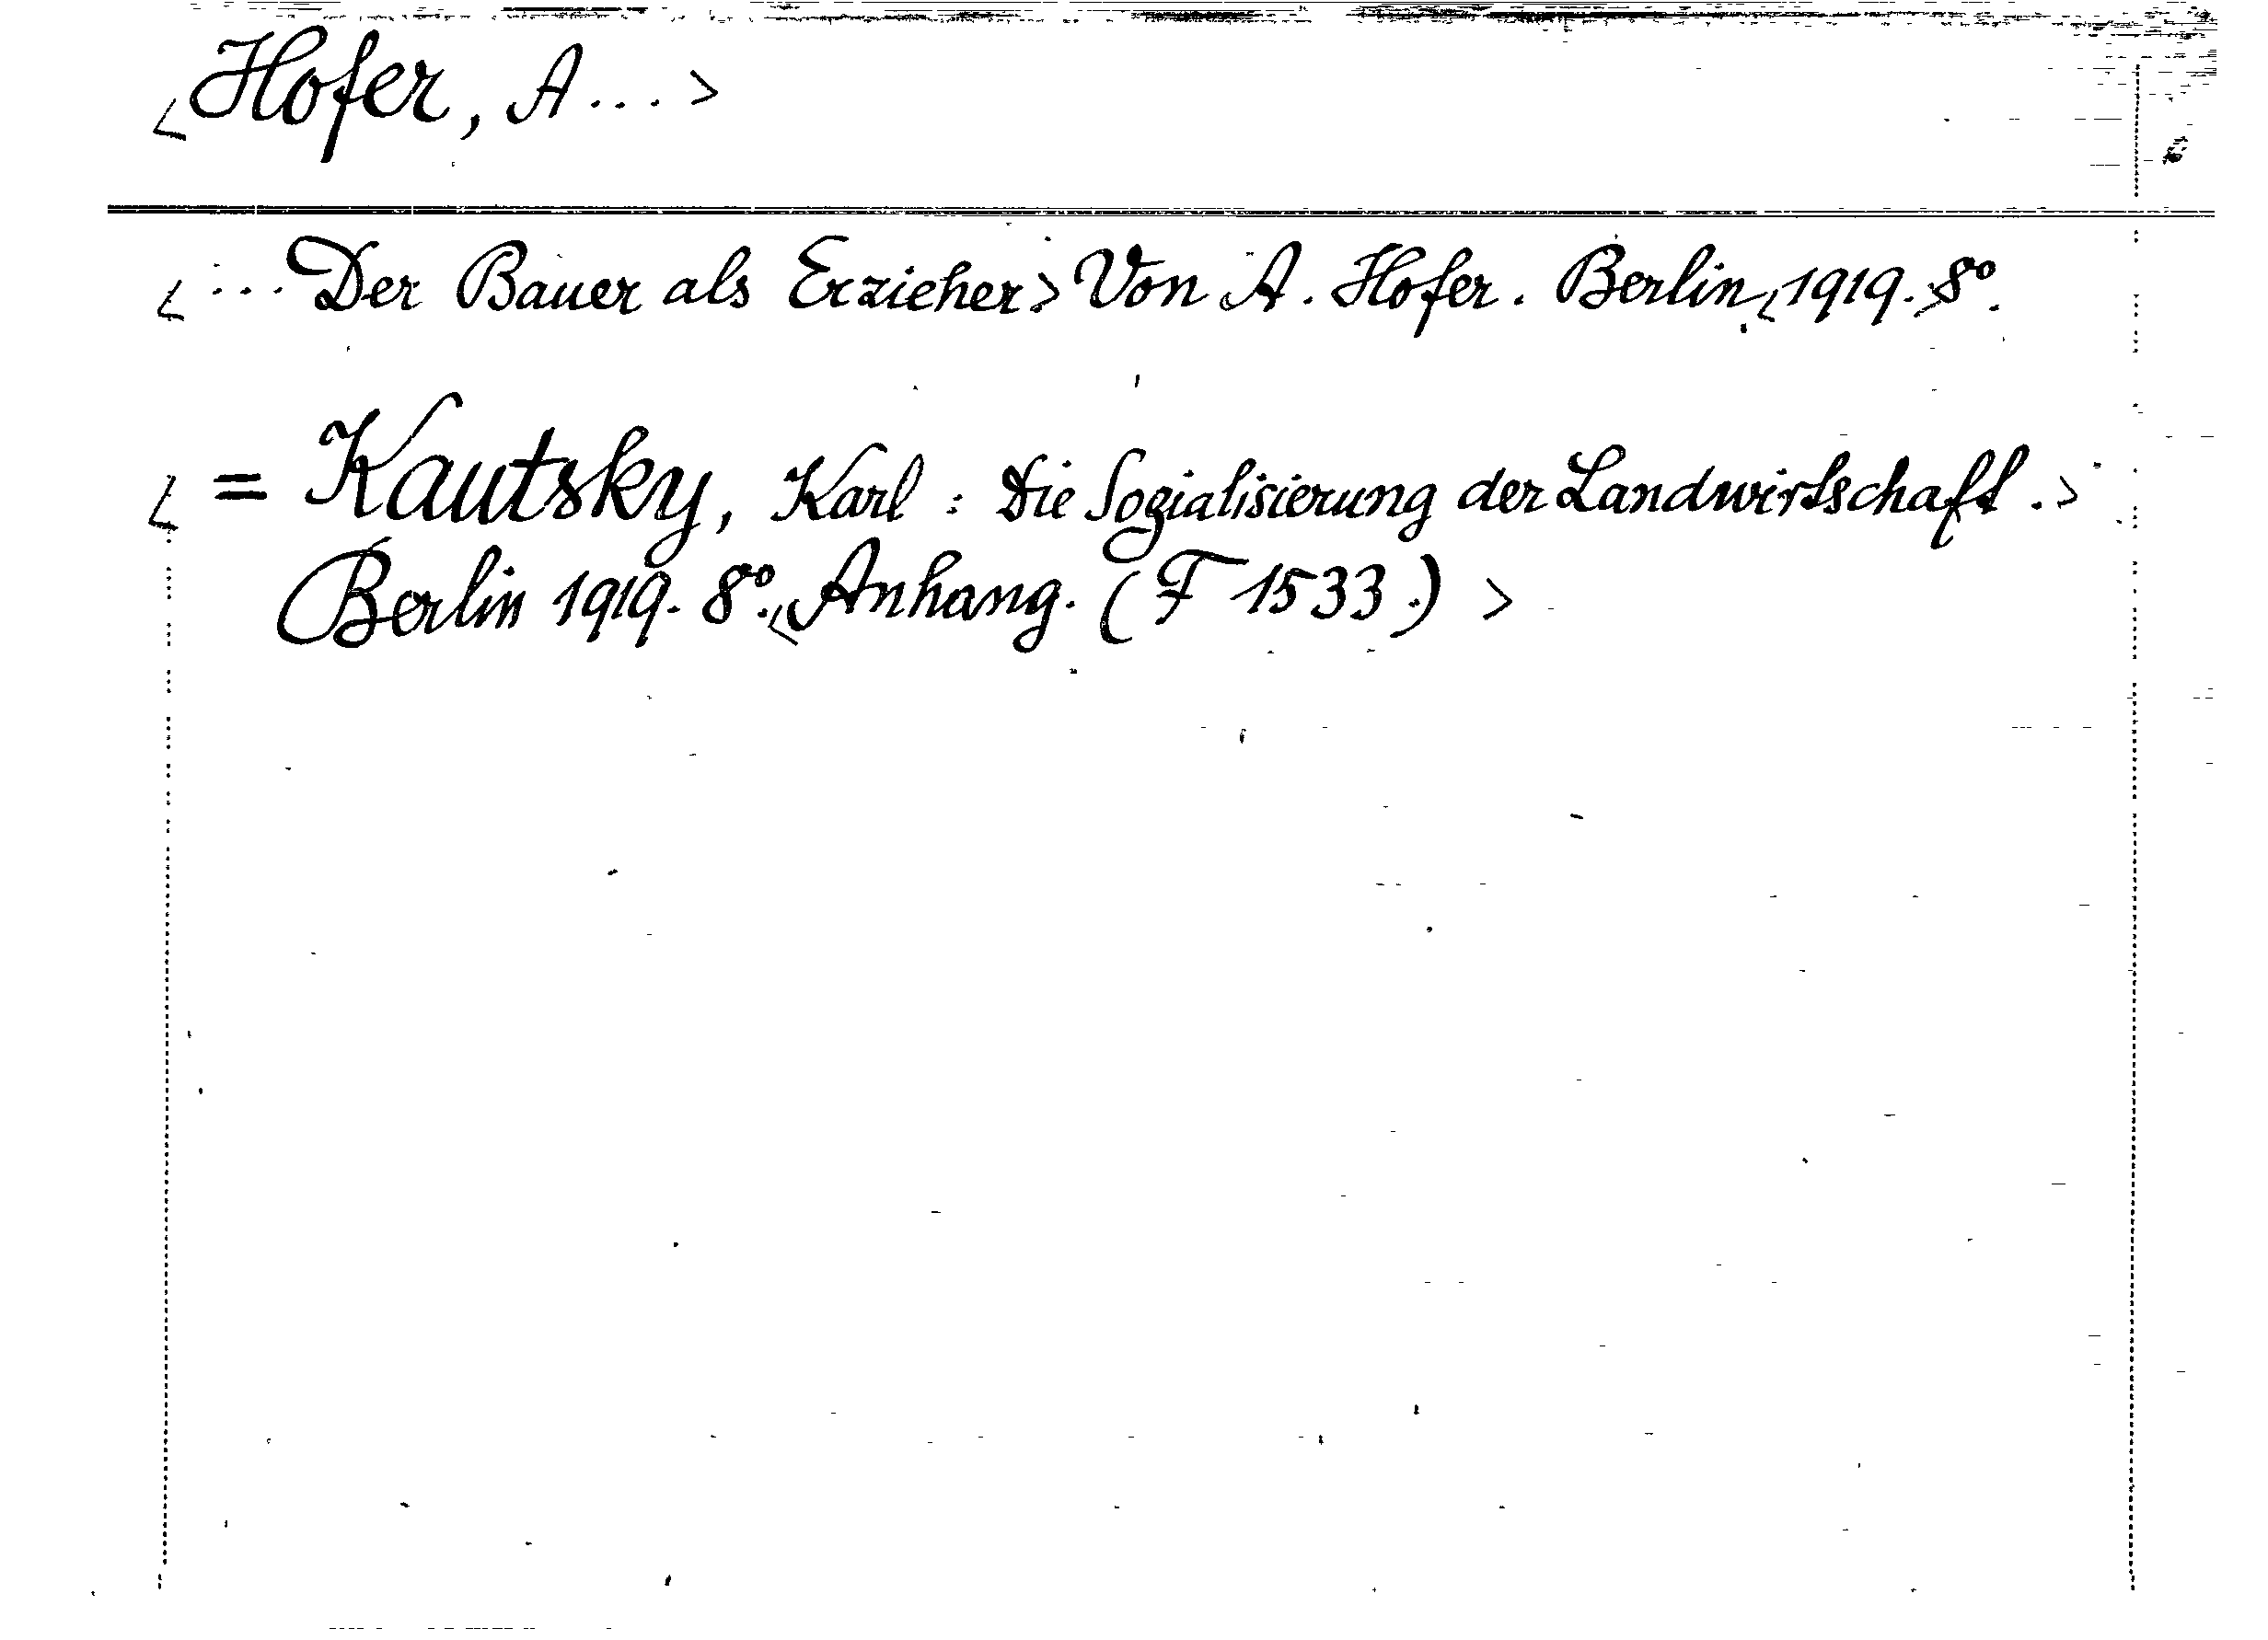 <Hofer, A...>
<...Der Bauer als Erzieher> Von A. Hofer. Berlin <1919.> 8°.
<= Kautsky, Karl : Die Sozialisierung der Landwirtschaft.>
Berlin 1919. 8°. <Anhang. (F 1533.)>